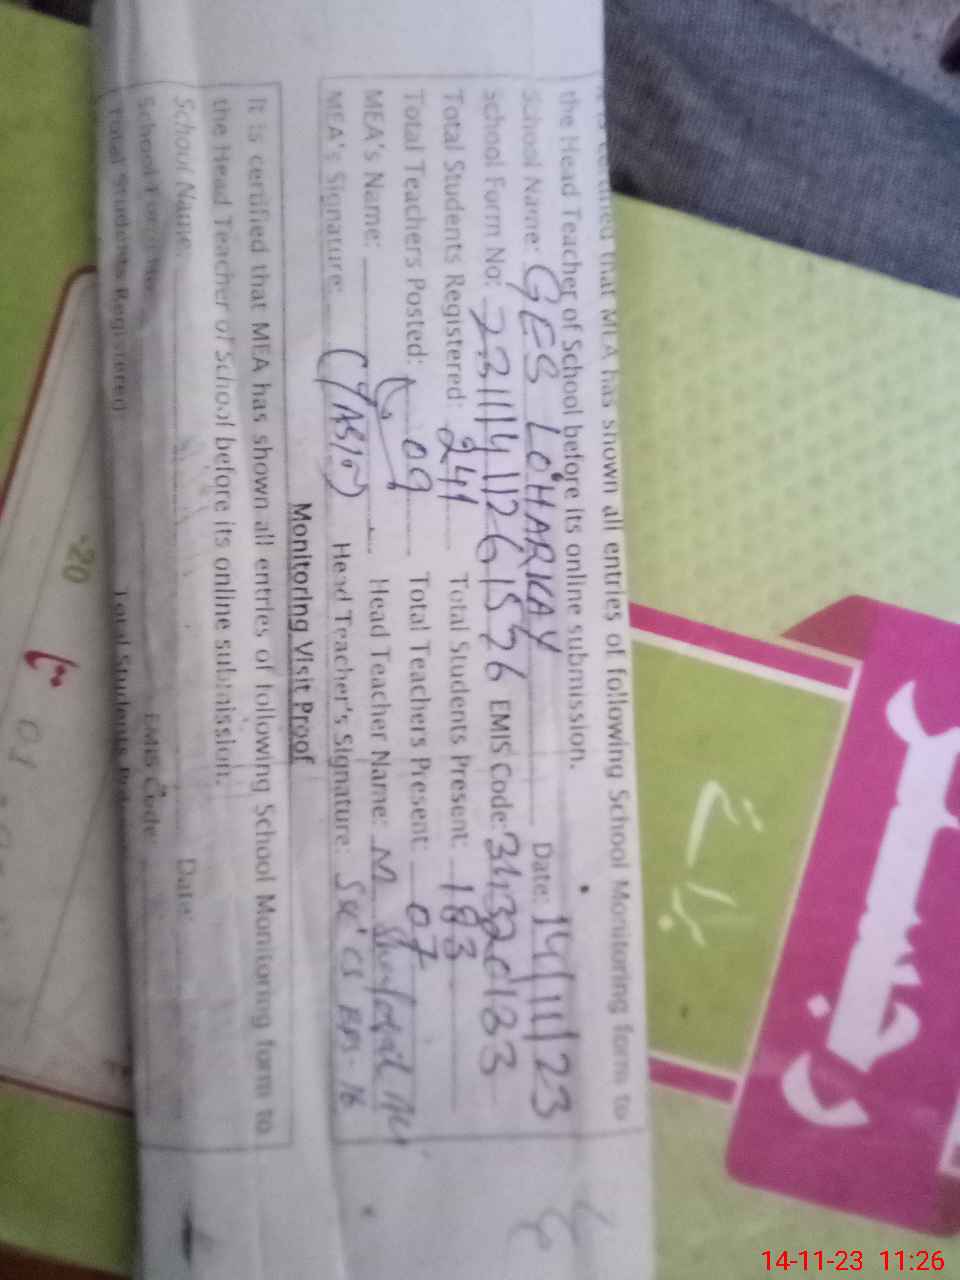 that MEA has shown all entries of following School Monitoring form to
the Head Teacher of School before its online submission.
School Name: GES LOHARKAY Date: 14/11/23
School Form No: EMIS Code:
Total Students Registered: 241 Total Students Present: 183
Total Teachers Posted: 09 Total Teachers Present: 07
MEA's Name: Head Teacher Name: M
MEA's Signature: (YASIN) Head Teacher's Signature:
Monitoring Visit Proof
It is certified that MEA has shown all entries of following School Monitoring form to
the Head Teacher of School before its online submission.
School Name: Date:
School Form No EMIS Code
Total Students Registered Total Students
رجسٹر
برائے
20
14-11-23 11:26